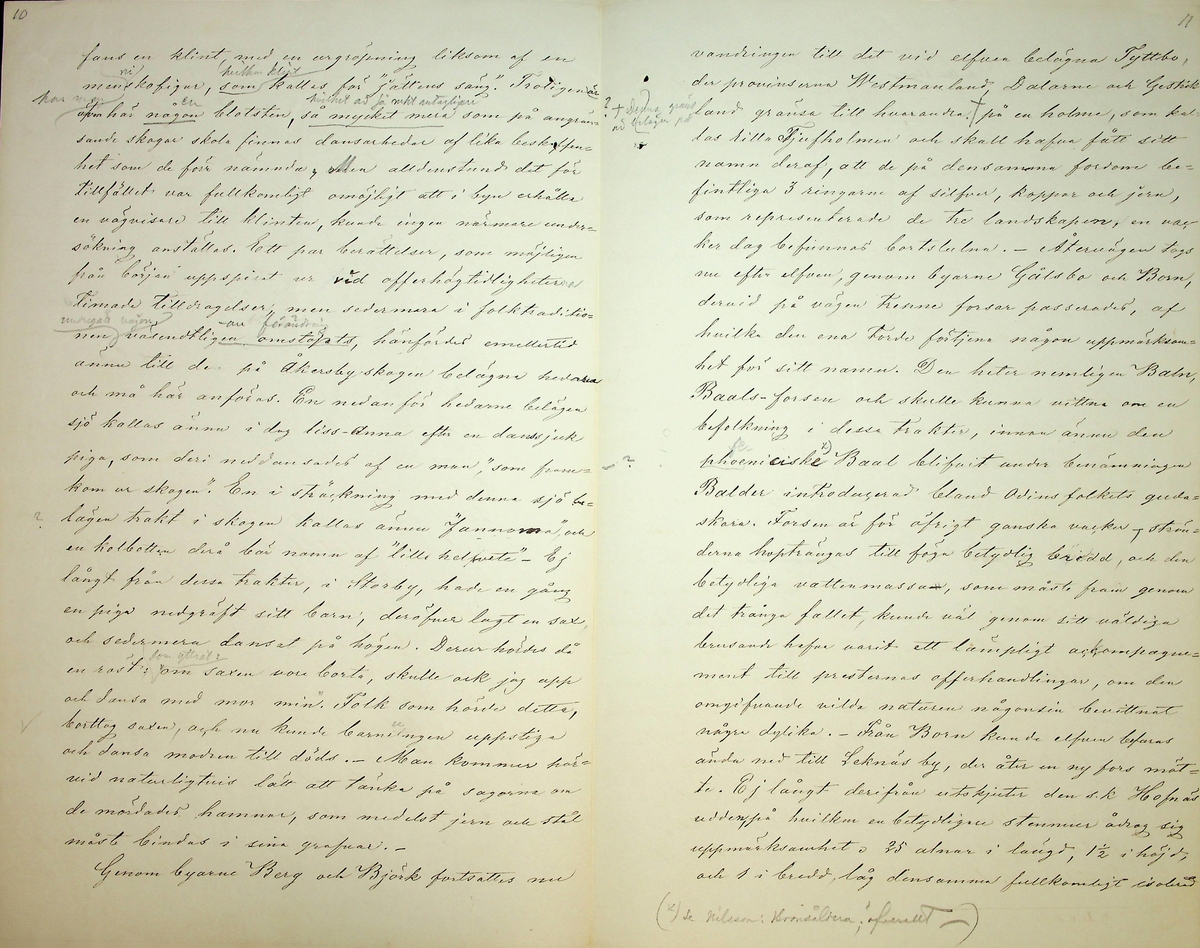 10
fans en klint, med en urgröpning liksom af en
menskofigur, som kallas för "jättens säng". Troligen är
äfven här någon blotsten, så mycket mera som på angrän-
sande skogar skola finnas dansarbedar af lika beskaffen-
het som de förr nämnda. Men alldenstund det för
tillfället var fullkomligt omöjligt att i byn erhålla
en vägvisare till klinten, kunde ingen närmare under-
sökning anställas. Ett par berättelser, som möjligen
från början uppspirat ur vid offerhögtidligheterna
timade tilldragelser, men sedermera i folktraditio-
nen väsendtligen omstöpts, hänfördes emellertid
ännu till de på Åkersby-skogen belägna hedarna
och må här anföras. En nedanför hedarne belägen
sjö kallas ännu i dag Liss-Anna efter en danssjuk
piga, som deri neddansades af en man, "som fram-
kom ur skogen". En i sträckning med denna sjö be-
lägen trakt i skogen kallas ännu "Jannoma", och
en kolbotten derå bär namn af "lilla helfvete" - Ej
långt från dessa trakter, i Storby, hade en gång
en piga nedgräft sitt barn, deröfver lagt en sax,
och sedermera dansat på högen. Derur hördes då
en röst: "om saxen vore borta, skulle ock jag upp
och dansa med mor min". Folk som hörde detta,
borttog saxen, och nu kunde barnungen uppstiga
och dansa modren till döds. - Man kommer här-
vid naturligtvis lätt att tänka på sagorna om
de mördades hamnar, som medelst jern och stål
måst bindas i sina grafvar. -
Genom byarne Berg och Björk fortsattes nu
11
vandringen till det vid elfven belägna Tyttbo,
der provinserna Westmanland, Dalarne och Gestrik-
land gränsa till hvarandra † på en holme, som kal-
las Tjufholmen och skall hafva fått sitt
namn deraf, att de på densamma fordom be-
fintliga 3 ringarne af silfver, koppar och jern,
som representerade de tre landskapen, en vac-
ker dag befunnos bortstulna. - Återvägen togs
nu efter elfven, genom byarne Gålsbo och Born,
dervid på vägen trenne forsar passerades, af
hvilka den ena torde förtjena någon uppmärksam-
het för sitt namn. Den heter nemligen Baln,
Baals-forsen och skulle kunna vittna om en
befolkning i dessa trakter, innan ännu den
phoeniciske x) Baal blifvit under benämningen
Balder introducerad bland Odinsfolkets guda-
skara. Forsen är för öfrigt ganska vacker, strän-
derna hopträngas till föga betydlig bredd, och den
betydliga vattenmassan, som måste fram genom
det trånga fallet, kunde väl genom sitt väldiga
brusande hafva varit ett lämpligt ackompagne-
ment till presternas offerhandlingar, om den
omgifvande vilda naturen någonsin bevittnat
några dylika. - Från Born kunde elfven befaras
ända ned till Leknäs by, der åter en ny fors möt-
te. Ej långt derifrån utskjuter den s.k. Hofnäs
udden, på hvilken en betydligare stenmur ådrog sig
uppmärksamhet. 35 alnar i längd, 1½ i höjd,
och 1 i bredd, låg densamma fullkomligt isolerad
(x) Se Nilsson: Bronsåldern, öfverallt -)